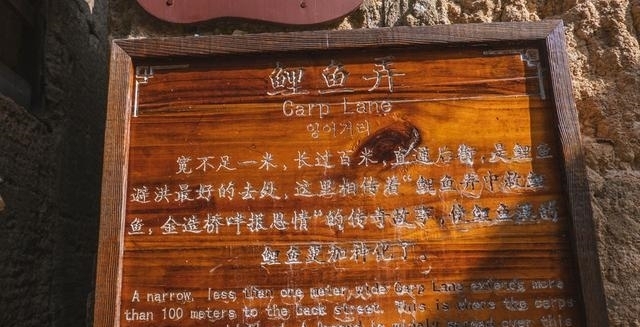 鲤鱼弄
Carp Lane
잉어거리
宽不足一米，长过百米，直通后街，是鲤鱼
避洪最好的去处，这里相传着“鲤鱼弄中救鲤
鱼，金造桥畔报恩情”的传奇故事，使鲤鱼溪的
鲤鱼更加神化了。
A narrow, less than one meter wide Carp Lane extends more
than 100 meters to the back street. This is where the carps